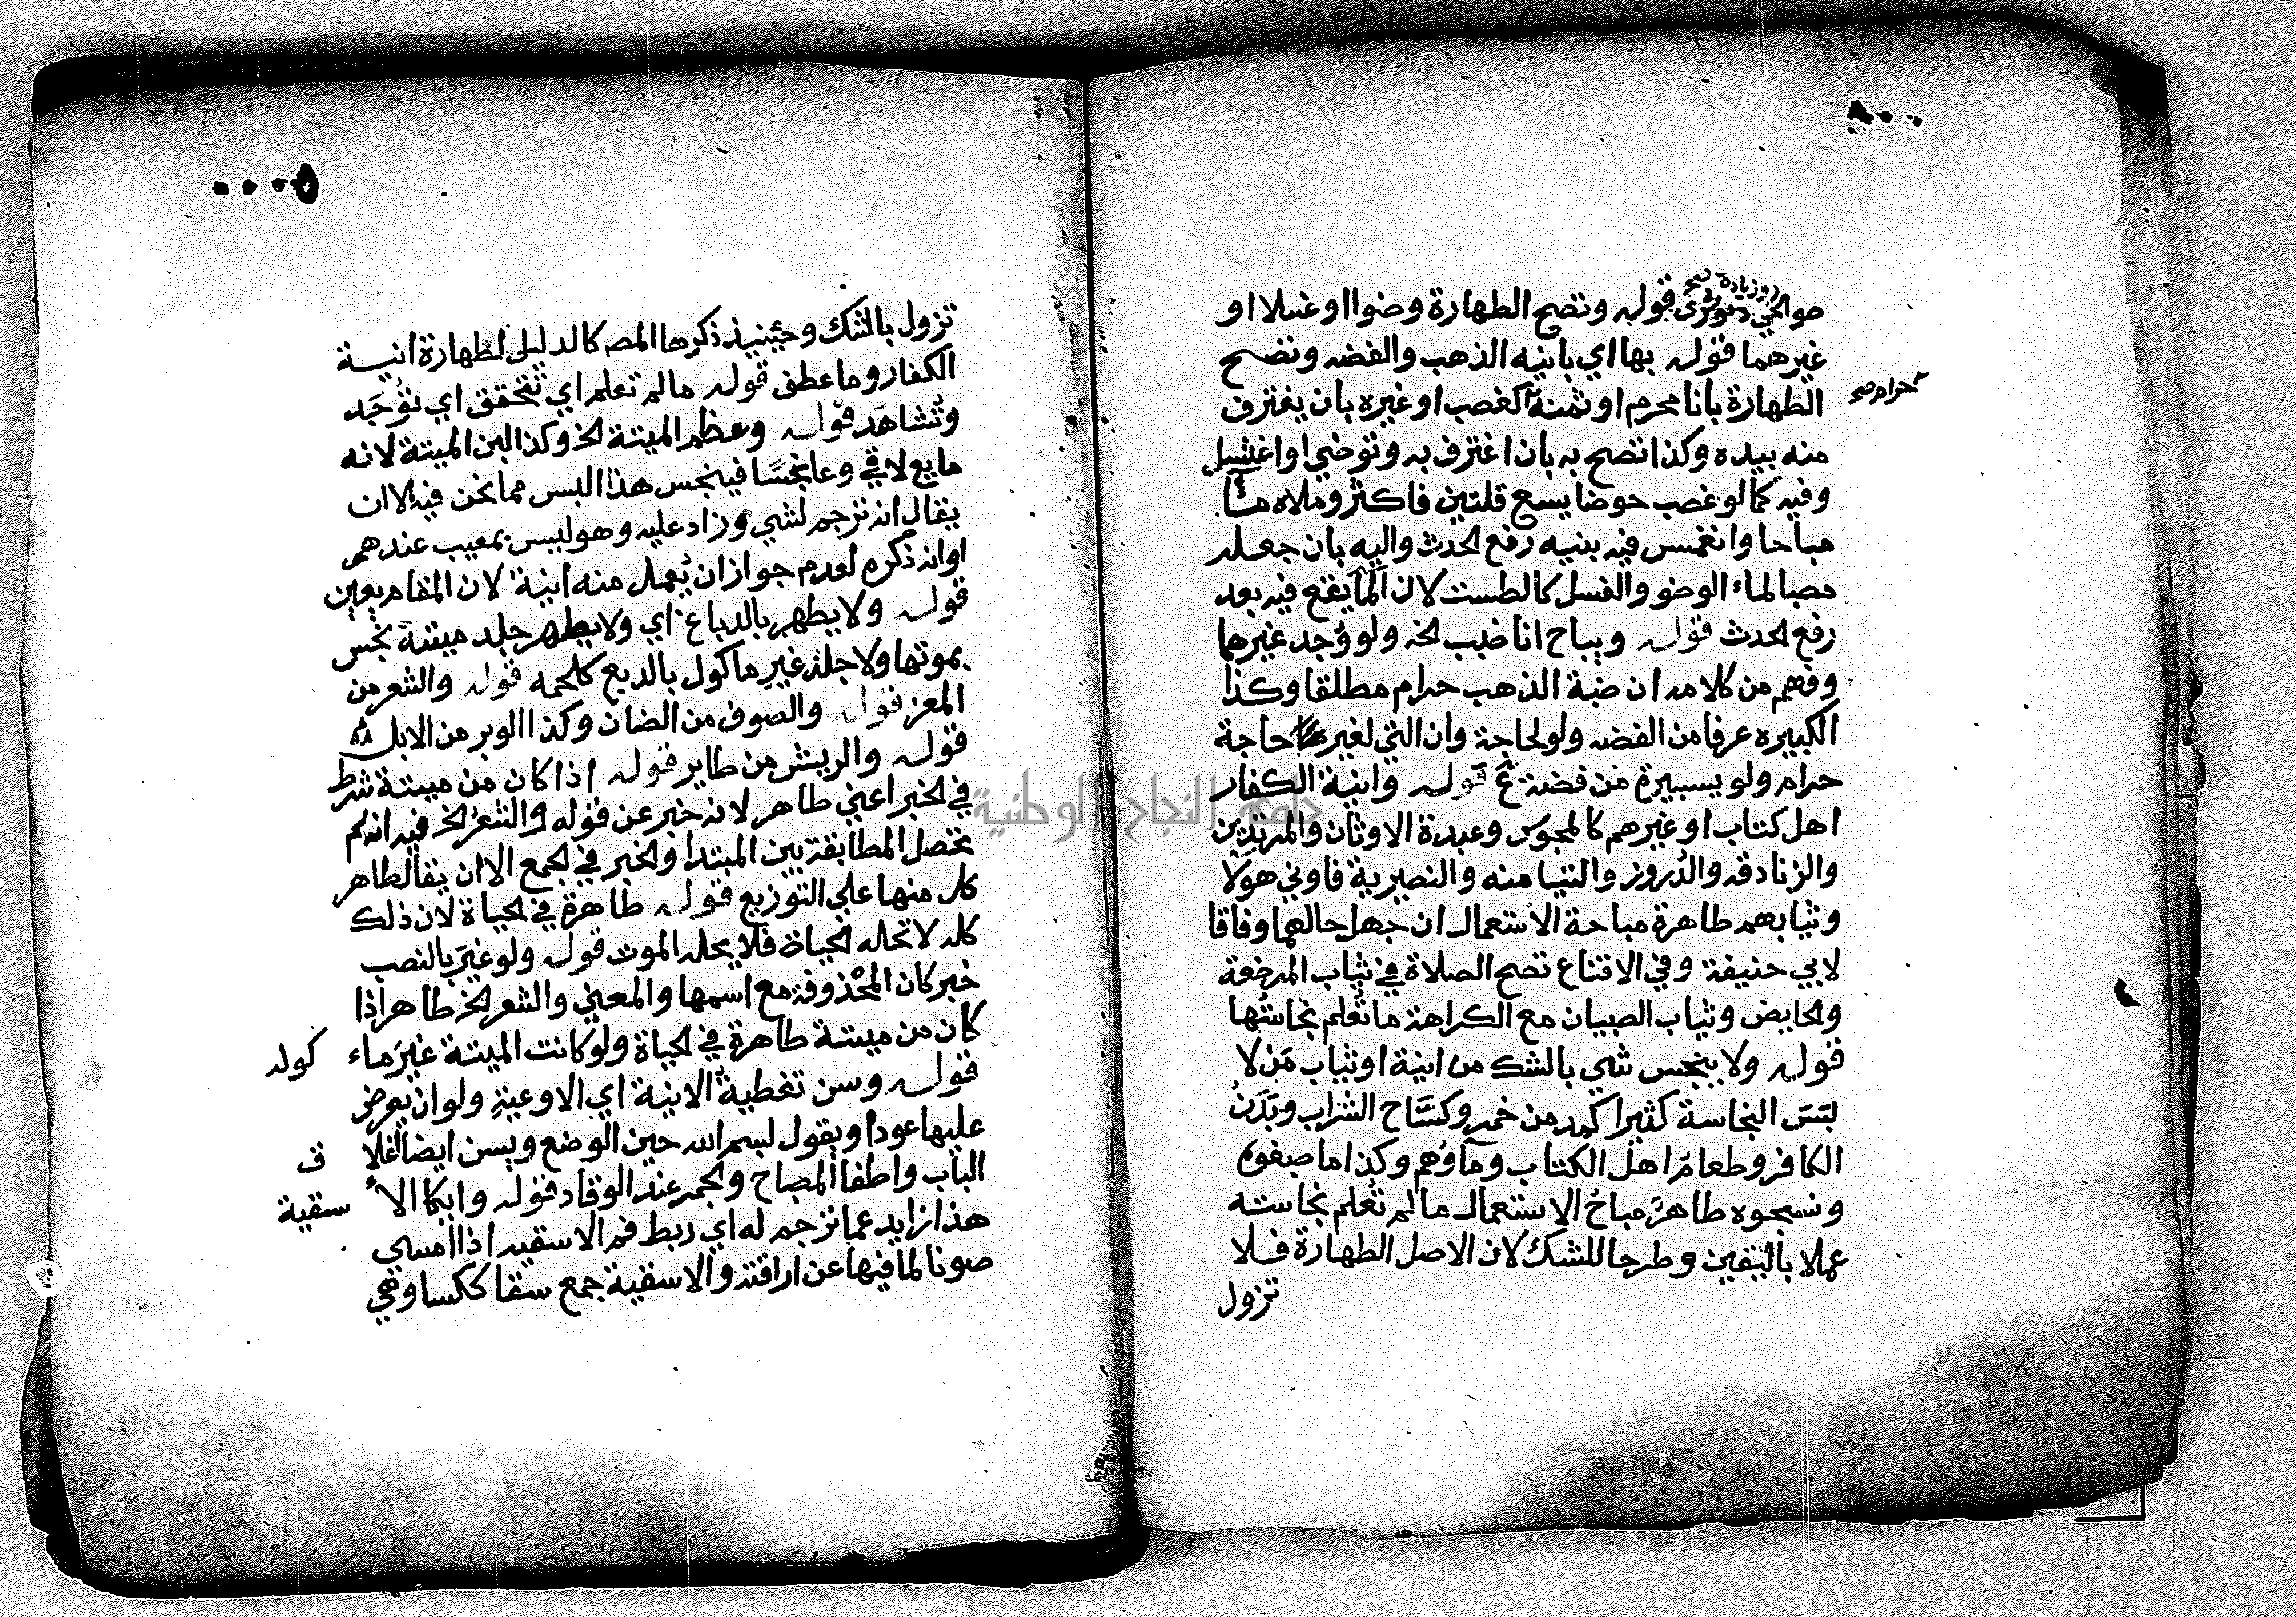 قوله وتصح الطهارة وضوا او غسلا او
غيرهما قوله بها اي بانيه الذهب والفضه وتصح
الطهارة بانا محرم او ثمنه كغصب او غيره بان يغترف
حرام صح
منه بيده وكذا تصح به بان اغترف به وتوضي او اغتسل
وفيه كما لو غصب حوضا يسع قلتين فاكثر وملاه مآ
مباحا وانغمس فيه بنيه رفع الحدث واليه بان جعله
مصبا لماء الوضو والغسل كالطست لان المآ يقع فيه بعد
رفع الحدث قوله ويباح انا ضبب الخ ولو وُجد غيرها
وفهم من كلامه ان ضبة الذهب حرام مطلقا وكذا
الكبيره عرفا من الفضه ولو لحاجة وان التي لغير حاجة
حرام ولو يسيرة من فضة قوله وانية الكفار
اهل كتاب او غيرهم كالمجوس وعبدة الاوثان والمرتدين
والزنادقه والدروز والتيامنه والنصيرية فاوني هولا
وثيابهم طاهرة مباحة الاستعمال ان جهل حالهما وفاقا
لابي حنيفة وفي الاقناع تصح الصلاة في ثياب المرضعة
والحايض وثياب الصبيان مع الكراهة ما تُعلم نجاستُها
قوله ولا ينجس شي بالشك من انية او ثياب مَن لا
بسَ النجاسة كثيرا كمدمن خمر وكسَّاح الشراب وبَدَنُ
الكافر وطعام اهل الكتاب وماؤهم وكذا ما صبغوه
ونسجوه طاهرٌ مباحُ الاستعمال ما لم تُعلم نجاسته
عملا باليقين وطرحا للشك لان الاصل الطهارة فلا
تزول
تزول بالشك وحينيذ ذكرها المص كالدليل لطهارة انية
الكفار وما عطف قوله ما لم تعلم اي تتحقق اي تُوجَد
وتُشاهَد قوله وعظم الميتة الخ وكذا لبن الميتة لانه
مايع لاقي وعا نجسًا فينجس هذا ليس مما نحن فيه الا ان
يقال انه ترجم لشي وزاد عليه وهو ليس بمعيب عندهم
او انه ذكره لعدم جواز ان يُعمل منه انية لان المقام يعين
قوله ولا يطهر بالدباغ اي ولا يطهر جلد ميتة نجس
بموتها ولا جلد غير ماكول بالدبغ كلحمه قوله والشعر من
المعز قوله والصوف من الضان وكذا الوبر من الابل
قوله والريش من طاير قوله اذا كان من ميتة شرط
في الخبر اعني طاهر لانه خبر عن قوله والشعر الخ فيه انه لم
تحصل المطابقة بين المبتدا والخبر في الجمع الا ان يقال طاهر
كل منها علي التوزيع قوله طاهرة في الحياة لان ذلك
كله لا تحله الحياة فلا يحله الموت قوله ولو غيرَ بالنصب
خبر كان المحذوفة مع اسمها والمعني والشعر الخ طاهر اذا
كان من ميتة طاهرة في الحياة ولو كانت الميتة غيرَ ماء
كوله
قوله وسن تغطية الانية اي الاوعية ولو ان يعرض
عليها عودا ويقول بسم الله حين الوضع ويسن ايضا اغلا
ق
الباب واطفا المصباح والجمر عند الوقاد قوله وايكا الا
سقية
هذا زايد عما ترجم له اي ربط فم الاسقيه اذا امسي
صونا لما فيها عن اراقته والاسقية جمع سقا ككسا وهي
جامعة النجاح الوطنية